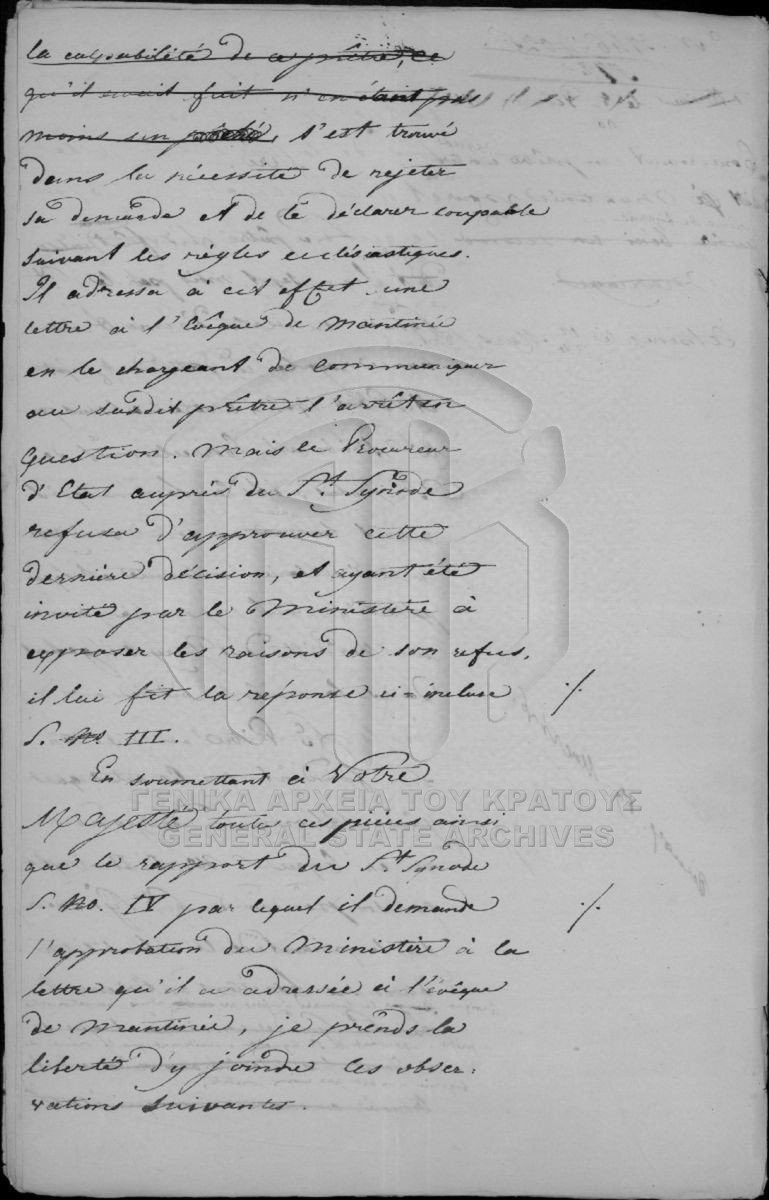 la culpabilité de ce prêtre, ce
qu'il avait fait n'en étant pas
moins un péché, s'est trouvé
dans la nécessité de rejeter
sa demande et de le déclarer coupable
suivant les règles ecclésiastiques.
Il adressa à cet effet une
lettre à l'Evêque de Mantinée
en le chargeant de communiquer
au susdit prêtre l'arrêt en
question. Mais le Procureur
d'Etat auprès du St. Synode
refusa d'approuver cette
dernière décision, et ayant été
invité par le Ministère à
exposer les raisons de son refus,
il lui fit la réponse ci-incluse ./.
S. No. III.
En soumettant à Votre
Majesté toutes ces pièces ainsi
ΓΕΝΙΚΑ ΑΡΧΕΙΑ ΤΟΥ ΚΡΑΤΟΥΣ
GENERAL STATE ARCHIVES
que le rapport du St. Synode
S. No. IV par lequel il demande ./.
l'approbation du Ministère à la
lettre qu'il a adressée à l'évêque
de Mantinée, je prends la
liberté d'y joindre les obser-
vations suivantes.